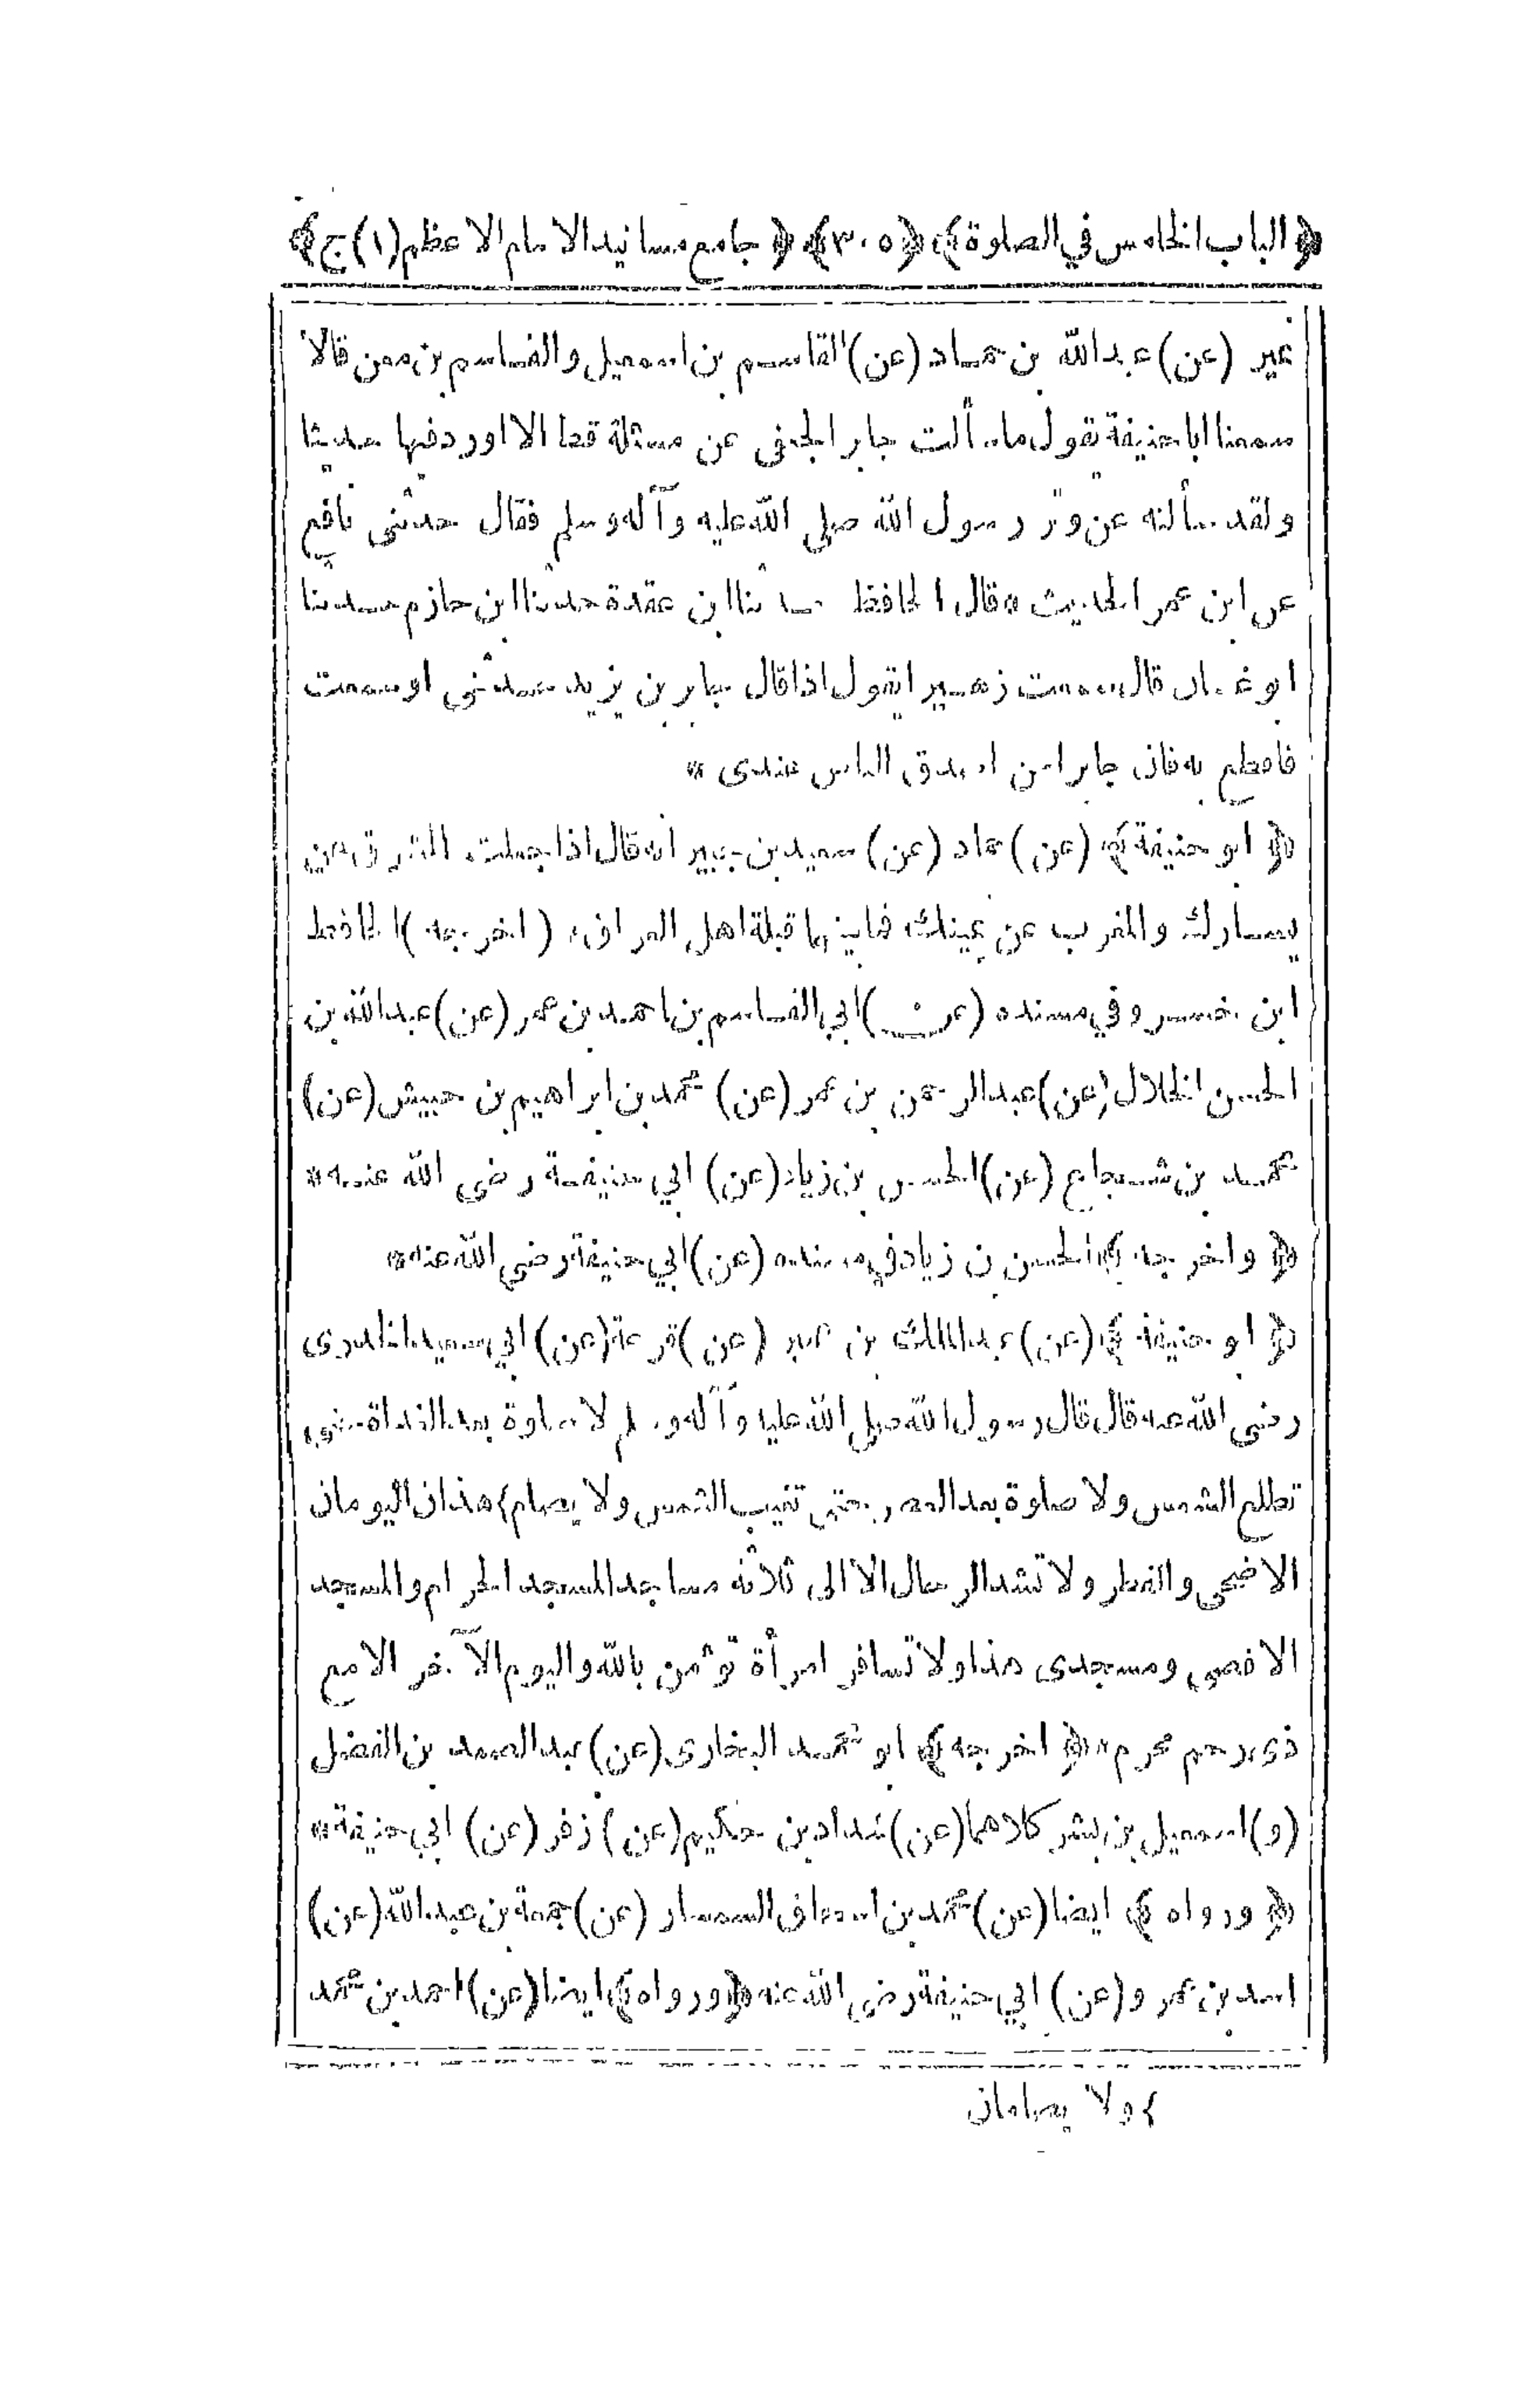 ﴿الباب الخامس في الصلوة﴾ ﴿٣٠٥﴾ ﴿جامع مسانيد الامام الاعظم (١) ج﴾
(عن) عبدالله بن حماد (عن) القاسم بن اسمعيل والقاسم بن معن قالا
سمعنا ابا حنيفة يقول ما سألت جابر الجعفى عن مسئلة قط الا اورد فيها حديثا
ولقد سألته عن وتر رسول الله صلى الله عليه وآله وسلم فقال حدثنى نافع
عن ابن عمر الحديث * قال الحافظ حدثنا ابن عقدة حدثنا ابن حازم حدثنا
ابو غسان قال سمعت زهيرا يقول اذا قال جابر بن يزيد حدثنى او سمعت
فاقطع به فان جابرا من اصدق الناس عندى *
﴿ ابو حنيفة ﴾ (عن) حماد (عن) سعيد بن جبير انه قال اذا جعلت المشرق عن
يسارك والمغرب عن يمينك فما بينهما قبلة اهل العراق * (اخرجه) الحافظ
ابن خسرو في مسنده (عن) ابي القاسم بن احمد بن عمر (عن) عبدالله بن
الحسن الخلال (عن) عبدالرحمن بن عمر (عن) محمد بن ابراهيم بن حبيش (عن)
محمد بن شجاع (عن) الحسن بن زياد (عن) ابي حنيفة رضى الله عنه *
﴿ واخرجه ﴾ الحسن بن زياد في مسنده (عن) ابي حنيفة رضى الله عنه *
﴿ ابو حنيفة ﴾ (عن) عبدالملك بن عمير (عن) قزعة (عن) ابي سعيد الخدرى
رضى الله عنه قال قال رسول الله صلى الله عليه وآله وسلم لا صلوة بعد الغداة حتى
تطلع الشمس ولا صلوة بعد العصر حتى تغيب الشمس ولا يصام } هذان اليومان
الاضحى والفطر ولا تشد الرحال الا الى ثلاثة مساجد المسجد الحرام والمسجد
الاقصى ومسجدى هذا ولا تسافر امرأة تؤمن بالله واليوم الآخر الا مع
ذى رحم محرم * ﴿ اخرجه ﴾ ابو محمد البخارى (عن) عبدالصمد بن الفضل
(و) اسمعيل بن بشر كلاهما (عن) شداد بن حكيم (عن) زفر (عن) ابي حنيفة *
﴿ ورواه ﴾ ايضا (عن) محمد بن اسحاق السمسار (عن) جمعة بن عبدالله (عن)
اسد بن عمرو (عن) ابي حنيفة رضى الله عنه ﴿ ورواه ﴾ ايضا (عن) احمد بن محمد
} ولا يصامان